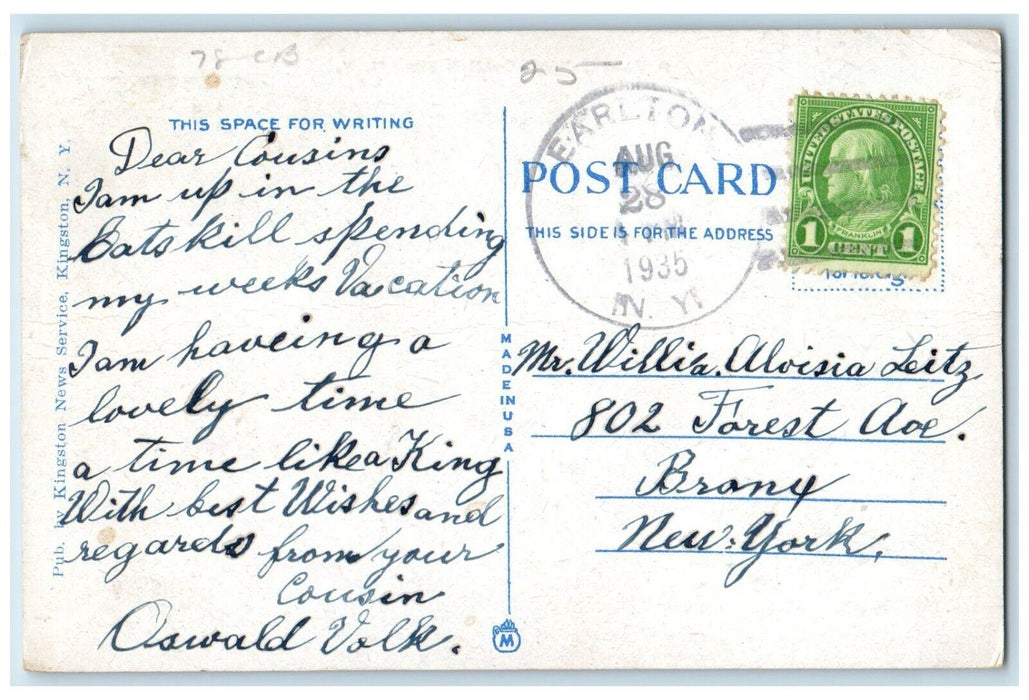 78 CB
25
THIS SPACE FOR WRITING
Dear Cousins
I am up in the
Catskill spending
my weeks Vacation
I am haveing a
lovely time
a time like a King
With best Wishes and
regards from your
Cousin
Oswald Volk.
Pub. by Kingston News Service, Kingston, N. Y.
MADE IN USA
M
EARLTON
AUG
28
1935
N. Y.
POST CARD
THIS SIDE IS FOR THE ADDRESS
UNITED STATES POSTAGE
FRANKLIN
1 CENT 1
Mr. Willi a. Aloisia Leitz
802 Forest Ave.
Bronx
New-York.